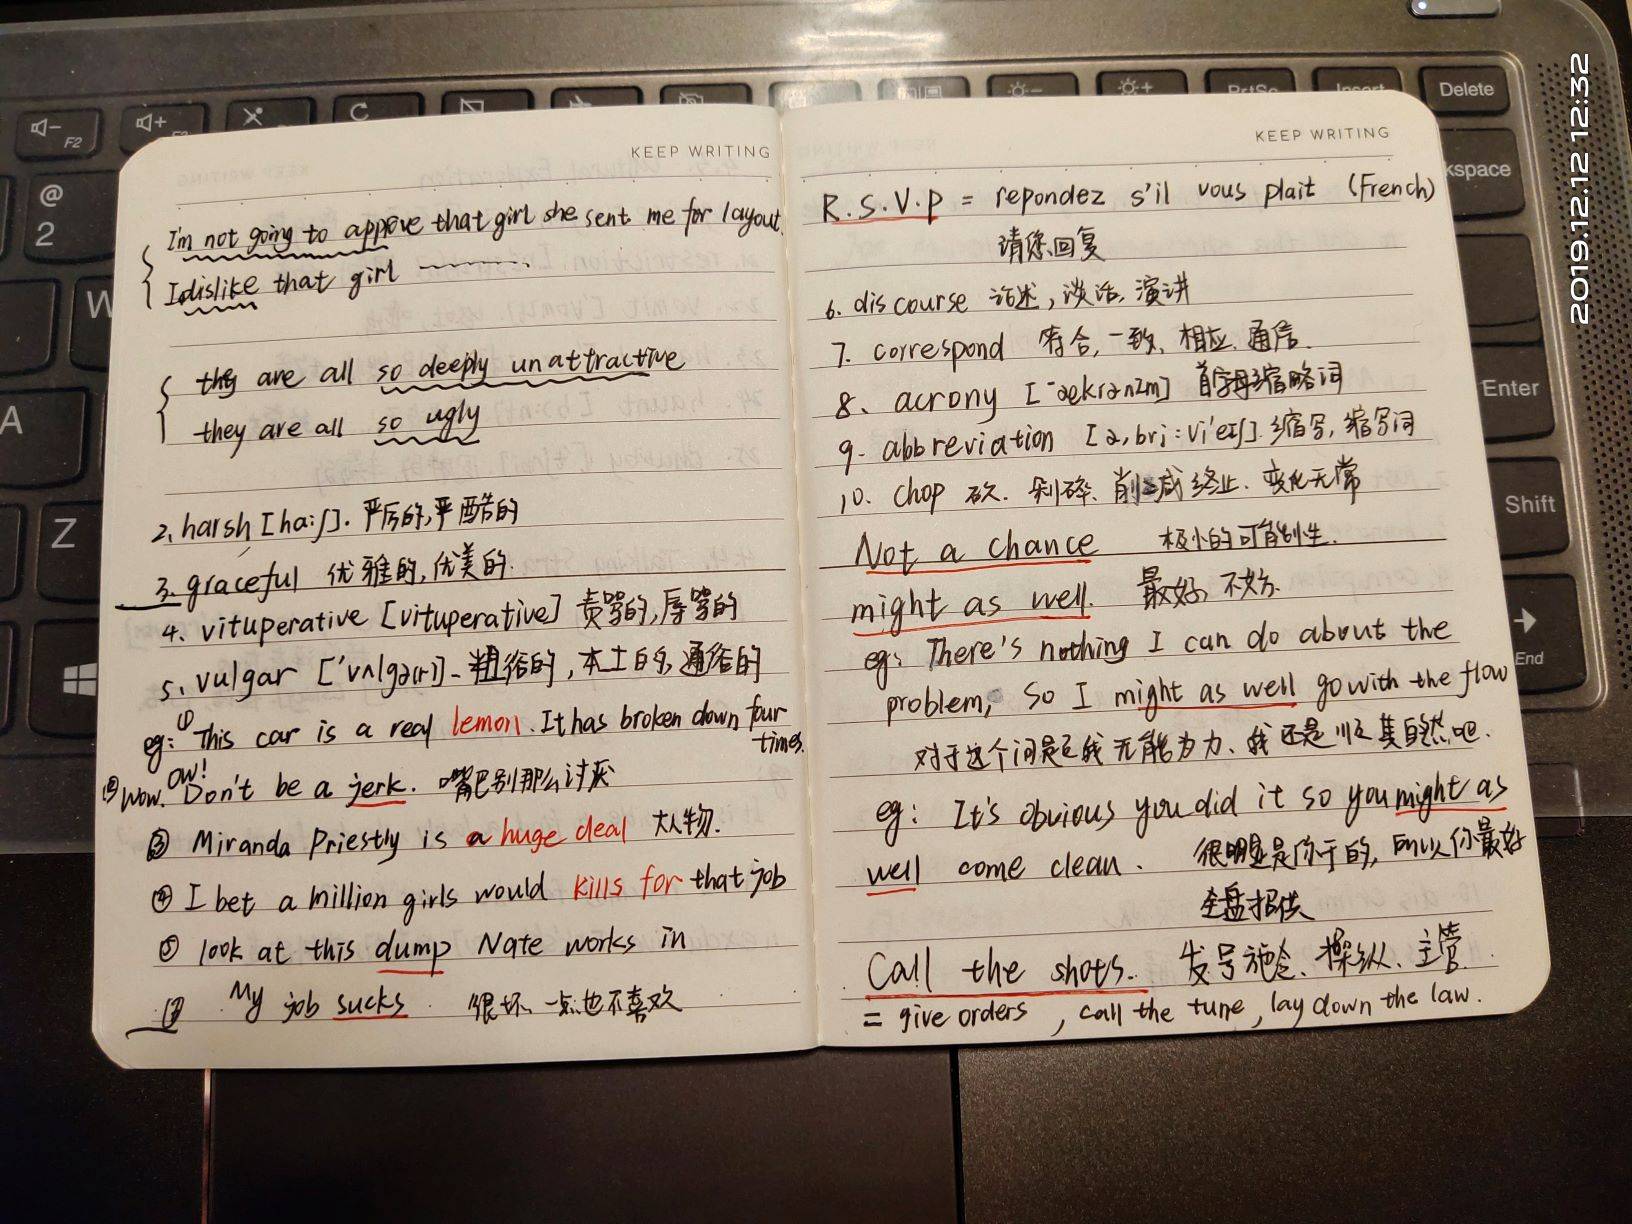 KEEP WRITING
I'm not going to approve that girl she sent me for layout.
I dislike that girl ----------.
they are all so deeply unattractive
they are all so ugly
2. harsh [ha:ʃ]. 严厉的,严酷的
3. graceful 优雅的,优美的.
4. vituperative [vituperative] 责骂的,辱骂的
5. vulgar ['vʌlgə(r)]. 粗俗的,本土的,通俗的
eg: ① This car is a real lemon. It has broken down four
times.
ow!
② Wow. Don't be a jerk. 嘴巴别那么讨厌
③ Miranda Priestly is a huge deal 大人物.
④ I bet a million girls would kills for that job
⑤ look at this dump Nate works in
My job sucks. 很坏 一点也不喜欢
KEEP WRITING
R.S.V.P = repondez s'il vous plait (French)
请您回复
6. discourse 论述,谈话,演讲
7. correspond 符合,一致、相应、通信.
8. acrony [-'ækrənIm] 首字母缩略词
9. abbreviation [ə,bri:vi'eɪʃ]. 缩写,缩写词
10. chop 砍. 剁碎、削减 终止、变化无常
Not a chance 极小的可能性.
might as well. 最好,不妨.
eg: There's nothing I can do about the
problem, so I might as well go with the flow
对于这个问题我无能为力、我还是顺其自然吧.
eg: It's obvious you did it so you might as
well come clean. 很明显是你干的,所以你最好
全盘招供
Call the shots. 发号施令、操纵、主管.
= give orders, call the tune, lay down the law.
@
2
F2
W
A
Z
PrtSc
Insert
Delete
kspace
Enter
Shift
End
2019.12.12 12:32